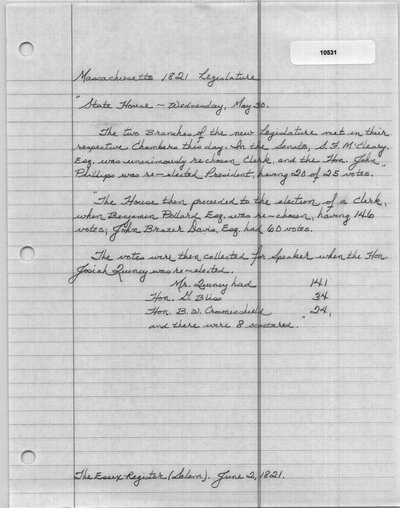 10531
Massachusetts 1821 Legislature
"State House - Wednesday, May 30.
The two Branches of the new Legislature met in their
respective Chambers this day. In the Senate, S. F. M'Cleary,
Esq. was unanimously re-chosen Clerk, and the Hon. John
Phillips was re-elected President, having 20 of 25 votes."
"The House then proceeded to the election of a Clerk,
when Benjamin Pollard Esq. was re-chosen, having 146
votes; John Brazer Davis, Esq. had 60 votes.
The votes were then collected for Speaker when the Hon.
Josiah Quincy was re-elected.
Mr. Quincy had 141
Hon. G. Bliss 34
Hon. B. W. Crowninshield 24,
and there were 8 scattered."
The Essex Register (Salem). June 2, 1821.